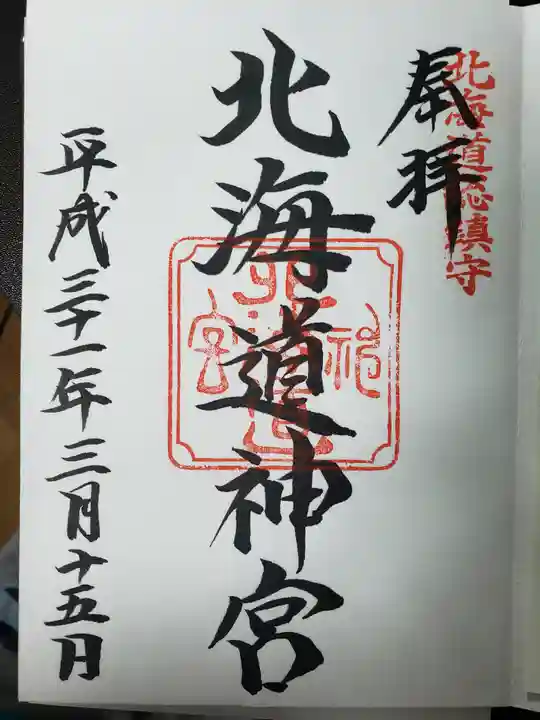 奉拝
北海道総鎮守
北海道神宮
平成三十一年三月十五日